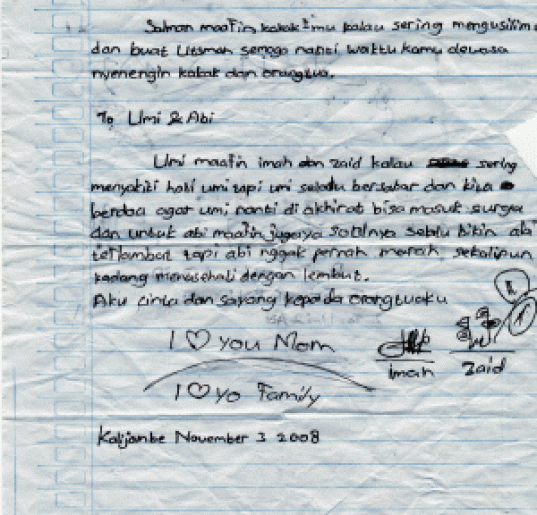 Salman maafin kakak²mu kalau sering mengusilim
dan buat Utsman semoga nanti waktu kamu dewasa
nyenengin kakak dan orangtua.
To Umi & Abi
Umi maafin imah dan zaid kalau sering
menyakiti hati umi tapi umi selalu bersabar dan kita
berdoa agar umi nanti di akhirat bisa masuk surga
dan untuk abi maafin jugaya soalnya selalu bikin abi
terlambat tapi abi nggak pernah marah, sekalipun
kadang menasehati dengan lembut.
Aku cinta dan sayang kepada orangtuaku
I ♡ you Mom
imah Zaid
I ♡ yo Family
Kalijambe November 3 2008